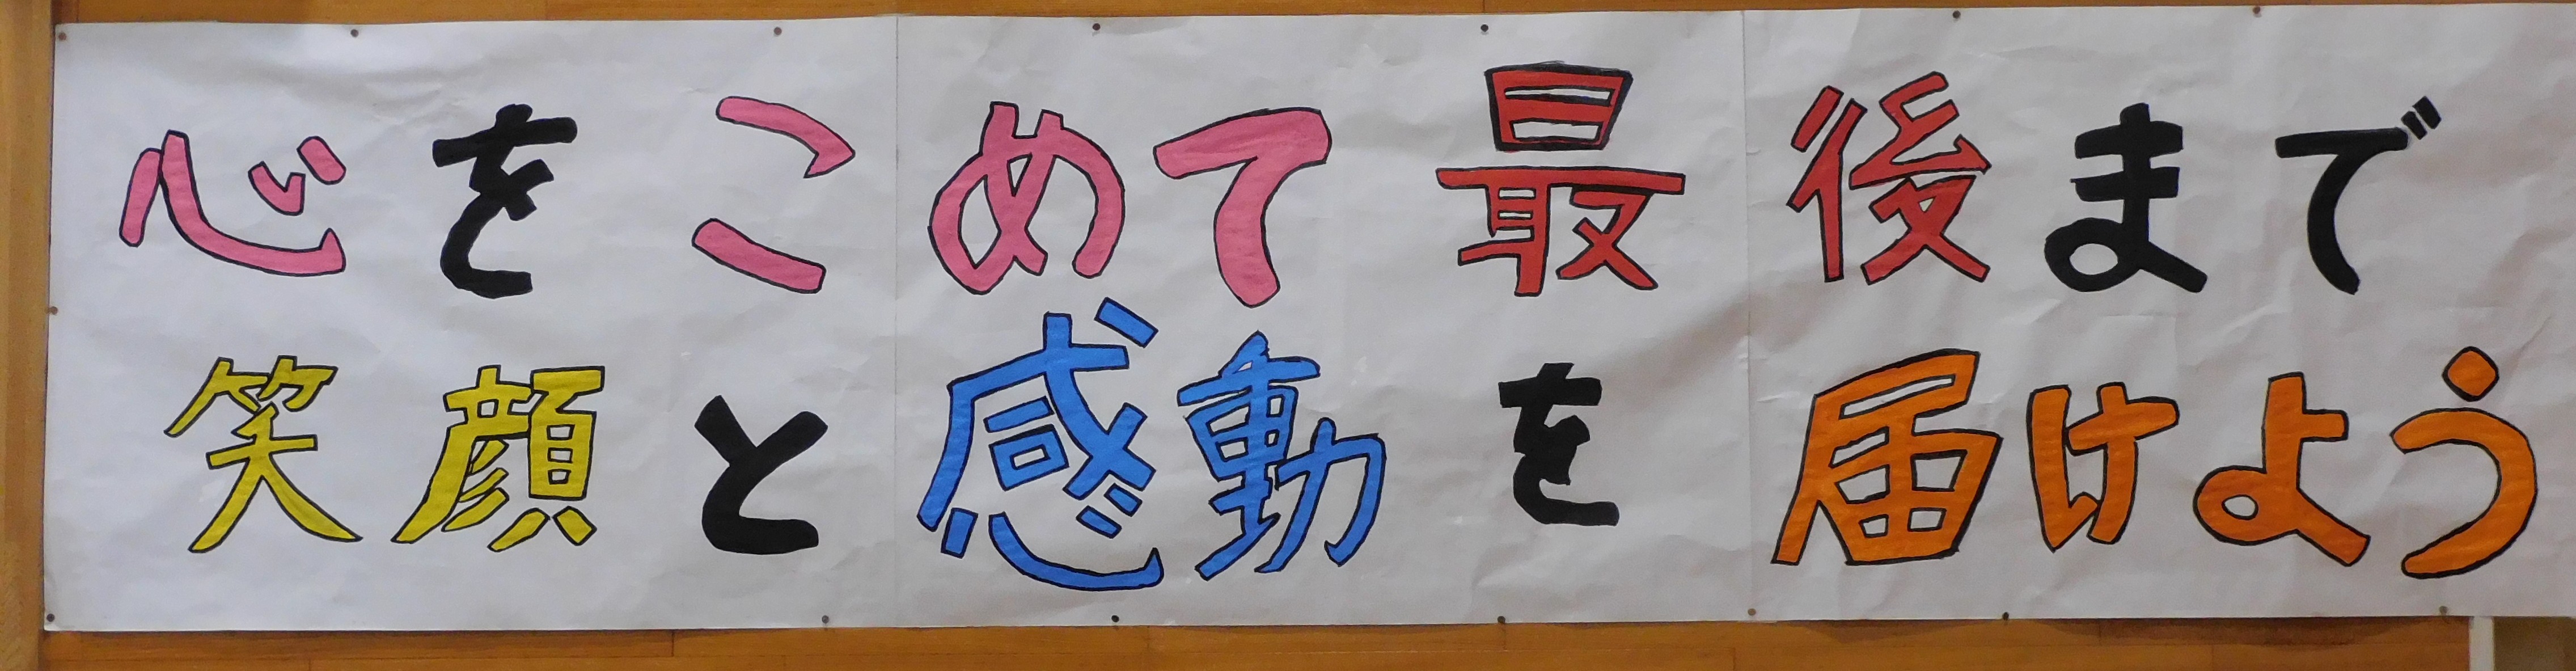 心をこめて最後まで
笑顔と感動を届けよう